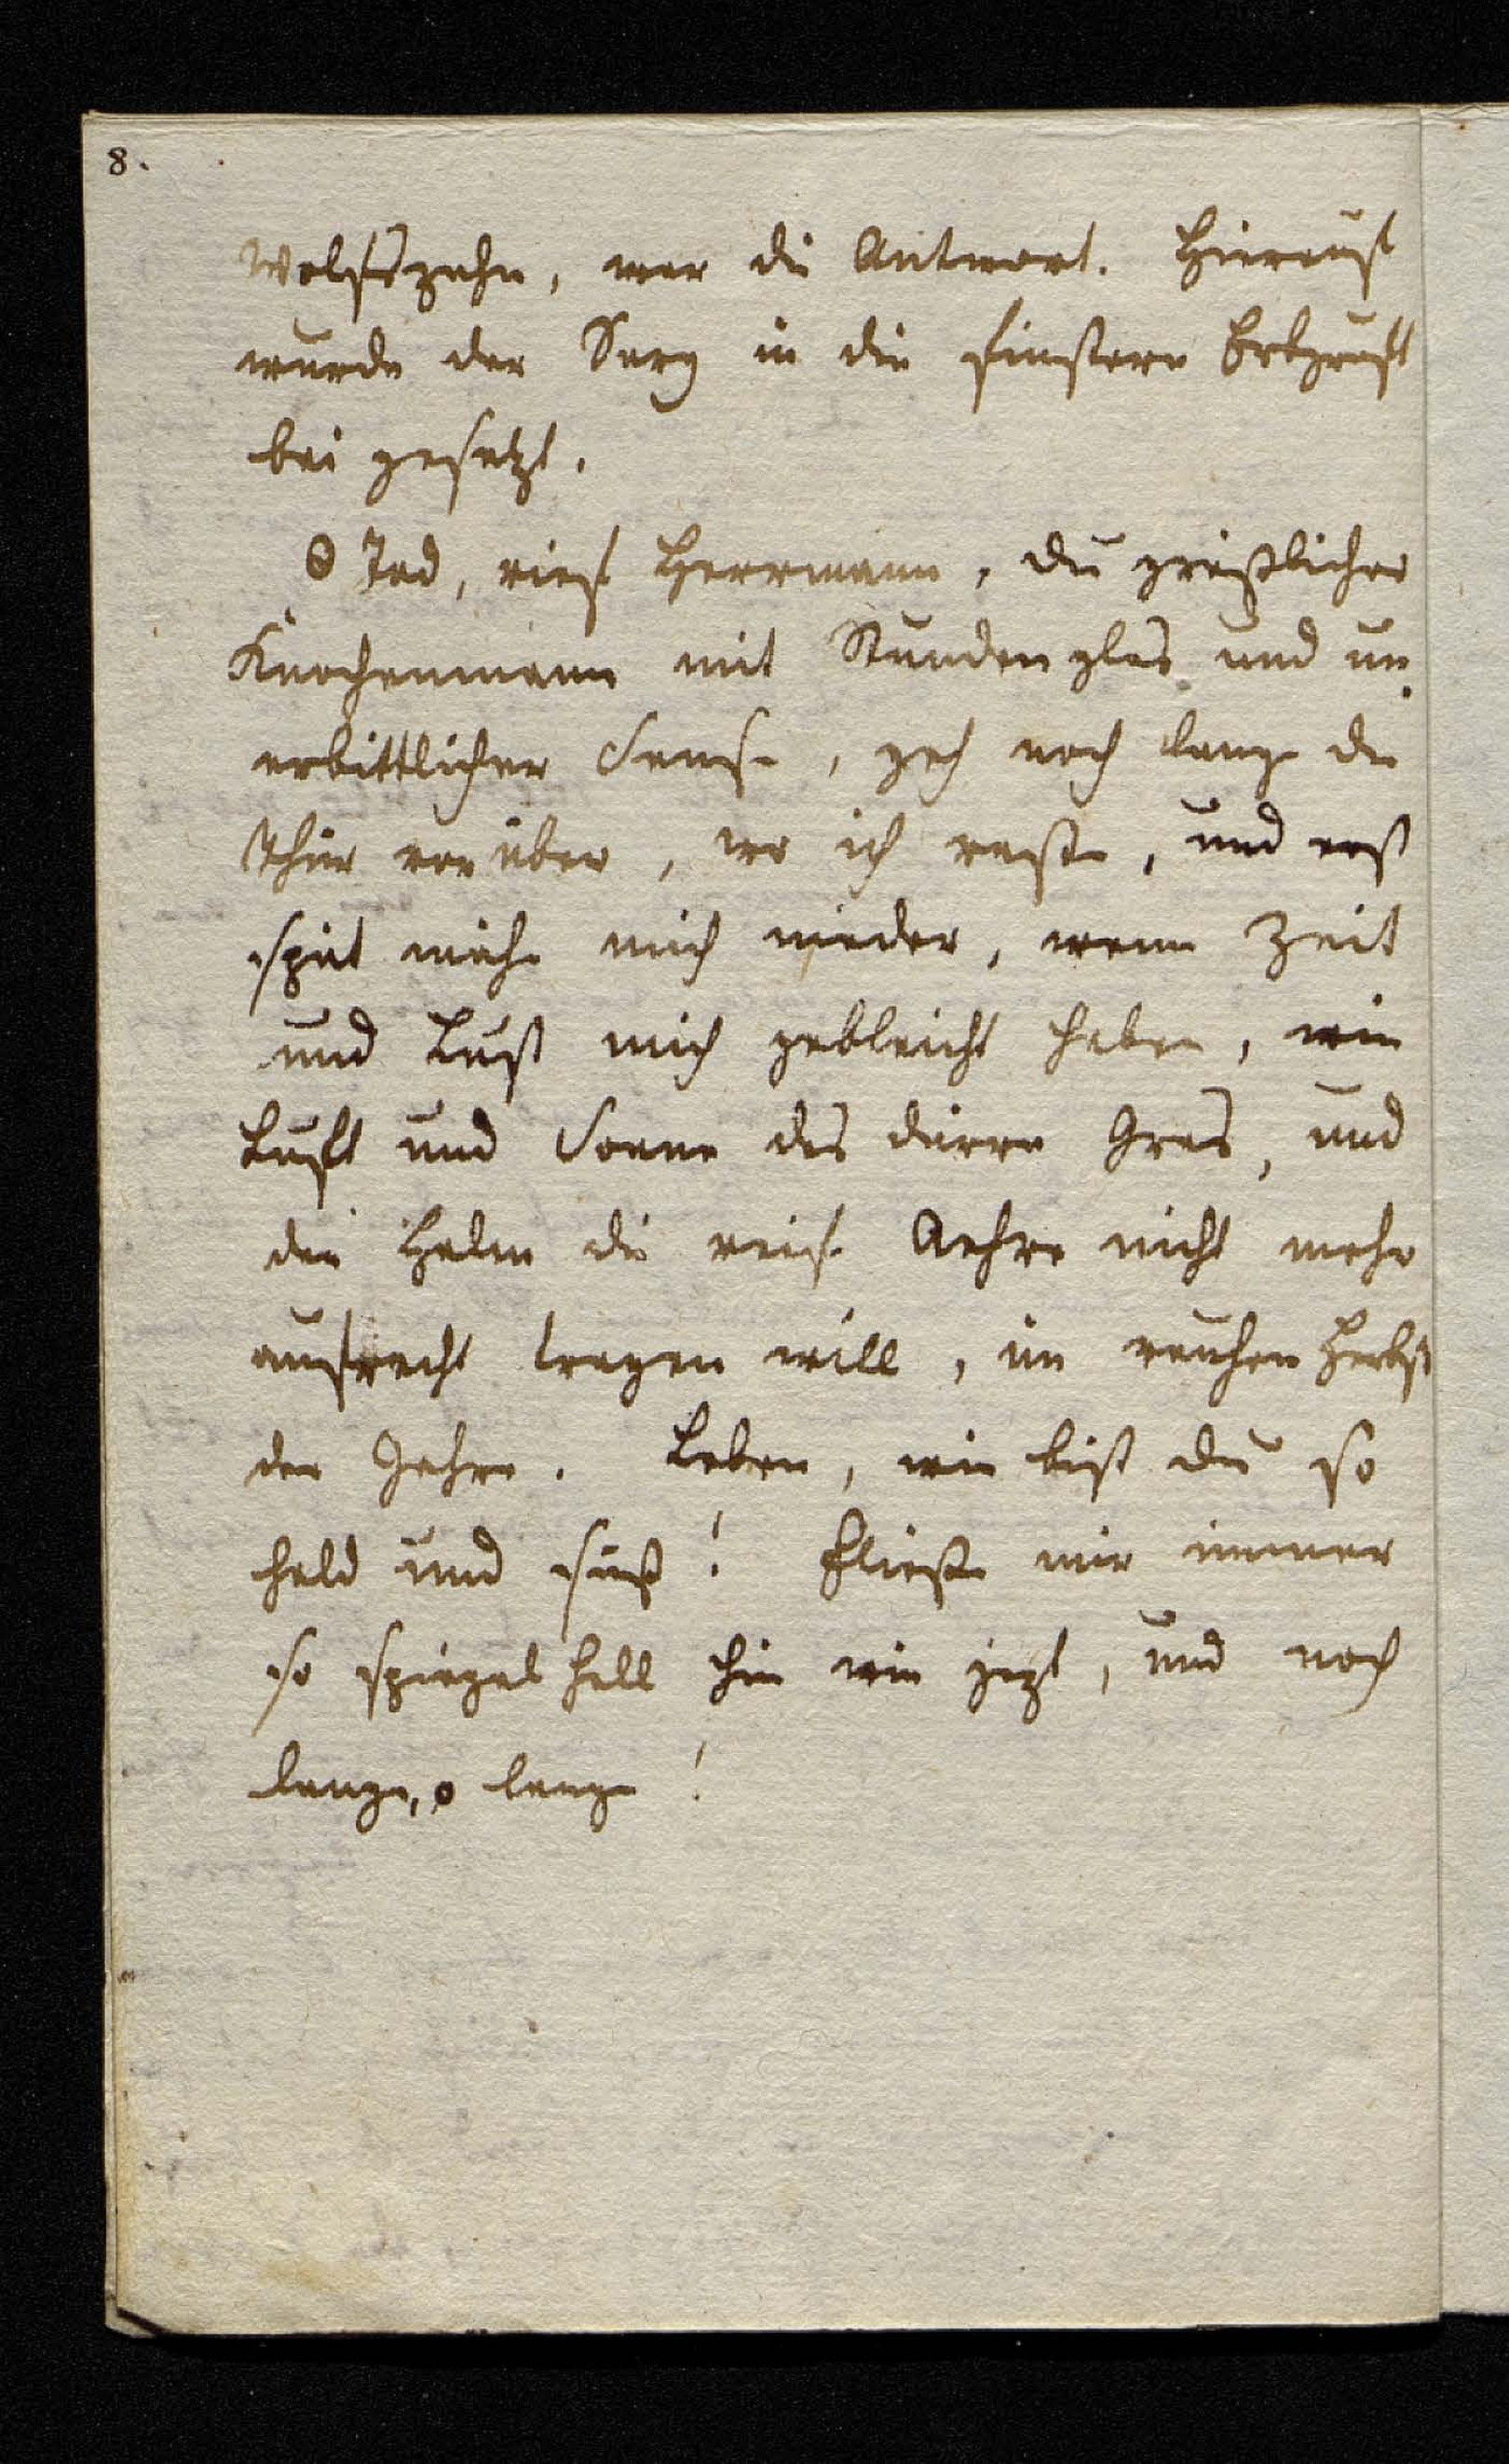 8.
Wolfszahn, war die Antwort. Hierauf
wurde der Sarg in die finstere Erbgruft
bei gesetzt.
O Tod, rief Herrmann, du gräßlicher
Knochenmann mit Stundenglas und un-
erbittlicher Sense, geh noch lang die
Thür vorüber, wo ich raste, und erst
spät mähe mich nieder, wenn Zeit
und Lust mich gebleicht haben, wie
Luft und Sonne das dürre Gras, und
der Halm die reife Aehre nicht mehr
aufrecht tragen will, im rauhen Herbst
der Jahre. Leben, wie bist du so
hold und süß! Fließe mir immer
so spiegel hell hin wie jezt, und noch
lange, o lange!